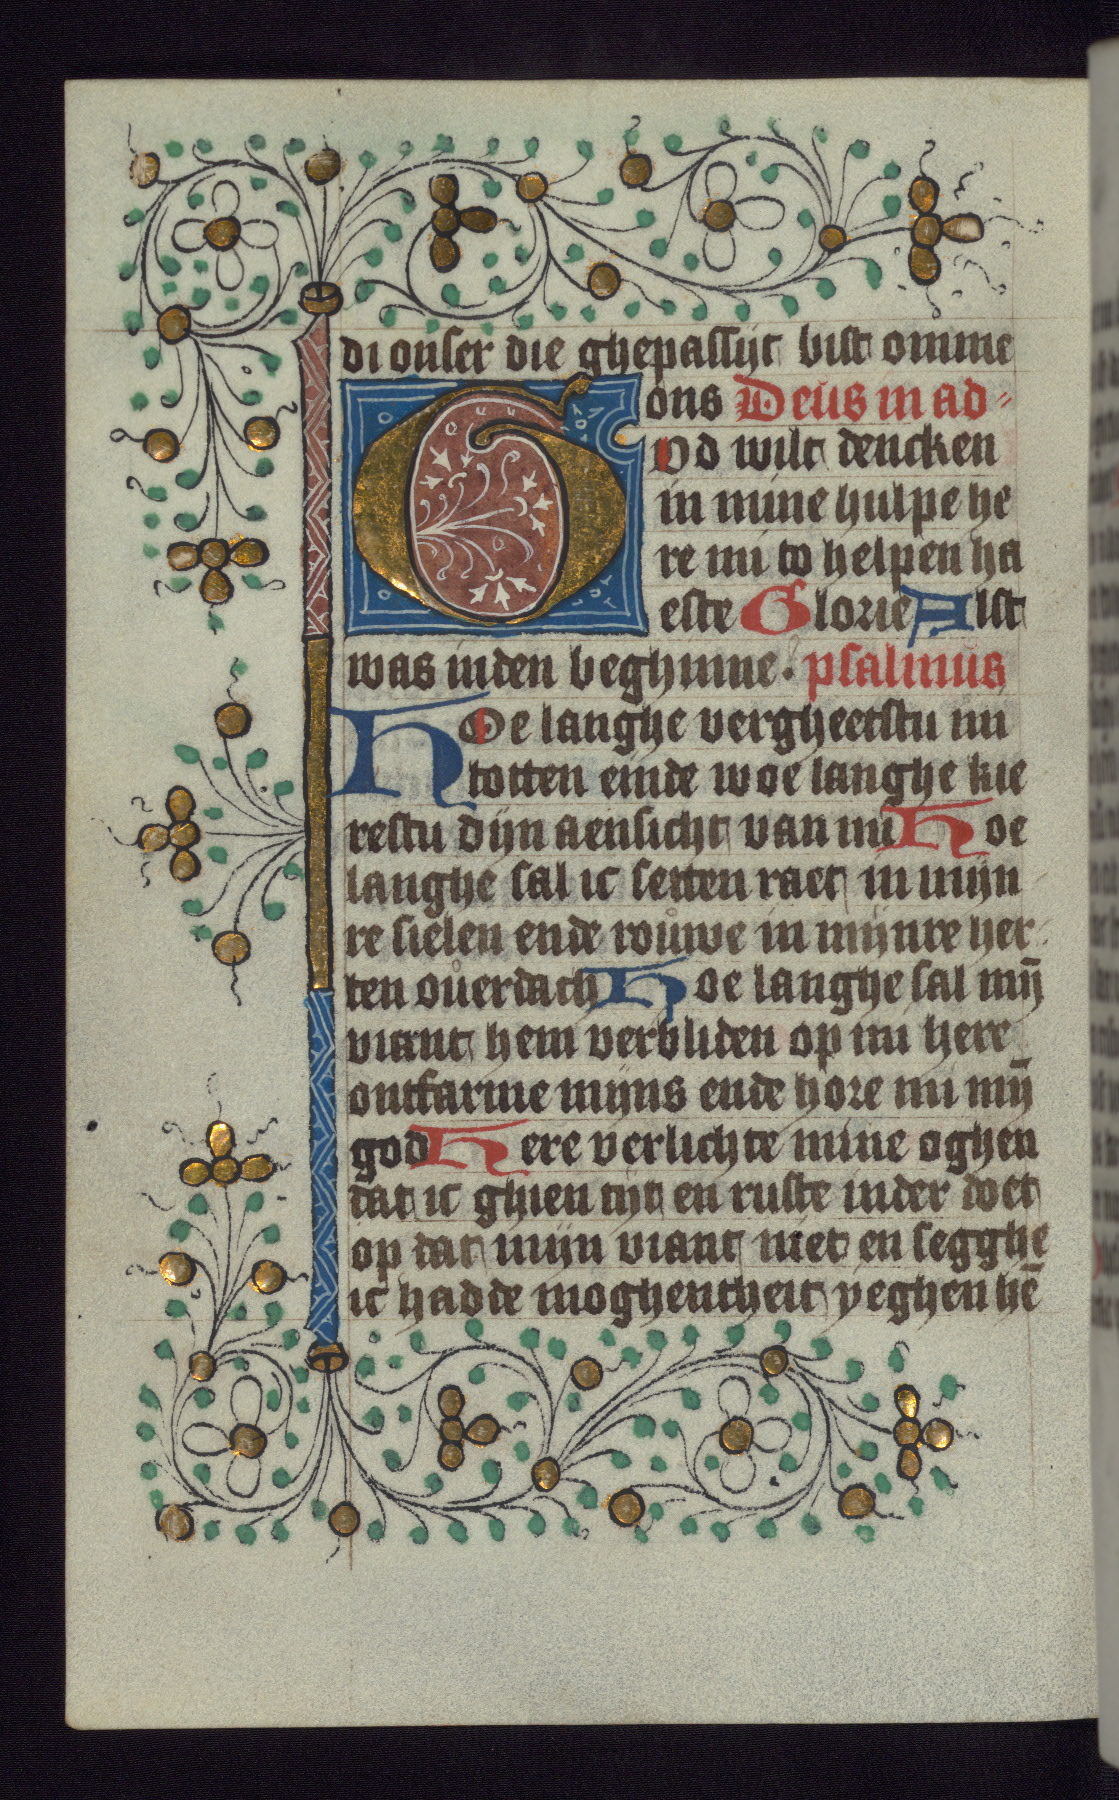 di onser die ghepassijt bist omme
ons Deus in ad
God wilt dencken
in mine hulpe he
re mi to helpen ha
este Glorie Alst
was inden beghinne. psalmus
Hoe langhe vergheetstu mi
totten einde woe langhe kie
restu dijn aensicht van mi Hoe
langhe sal ic setten raet in mijn
re sielen ende rouwe in mijnre her
ten ouerdach Hoe langhe sal mȳ
viant hem verbliden op mi here
ontfarme mijns ende hore mi mȳ
god Here verlichte mine oghen
dat ic ghien tijt en ruste inder doet
op dat mijn viant niet en segghe
ic hadde moghentheit yeghen hē